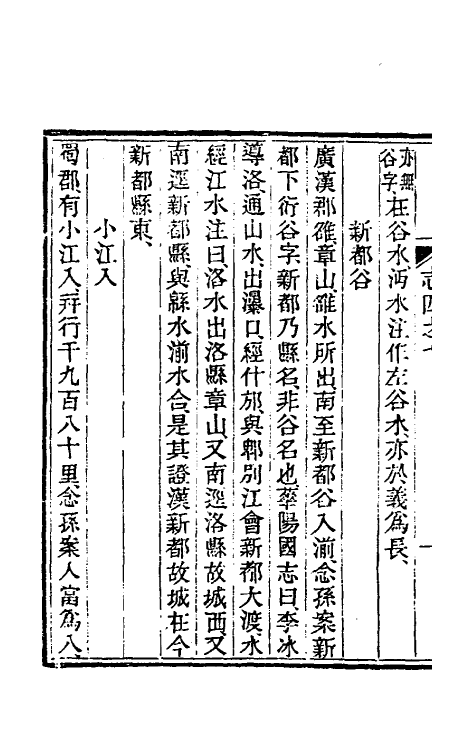 亦無
谷字在谷水沔水注作左谷水亦於義爲長
新都谷
廣漢郡雒章山雒水所出南至新都谷入湔念孫案新
都下衍谷字新都乃縣名非谷名也華陽國志曰李冰
導洛通山水出瀑口經什邡與郫別江會新都大渡水
經江水注曰洛水出洛縣章山又南逕洛縣故城西又
南逕新都縣與緜水湔水合是其證漢新都故城在今
新都縣東
小江入
蜀郡有小江入幷行千九百八十里念孫案人富爲八